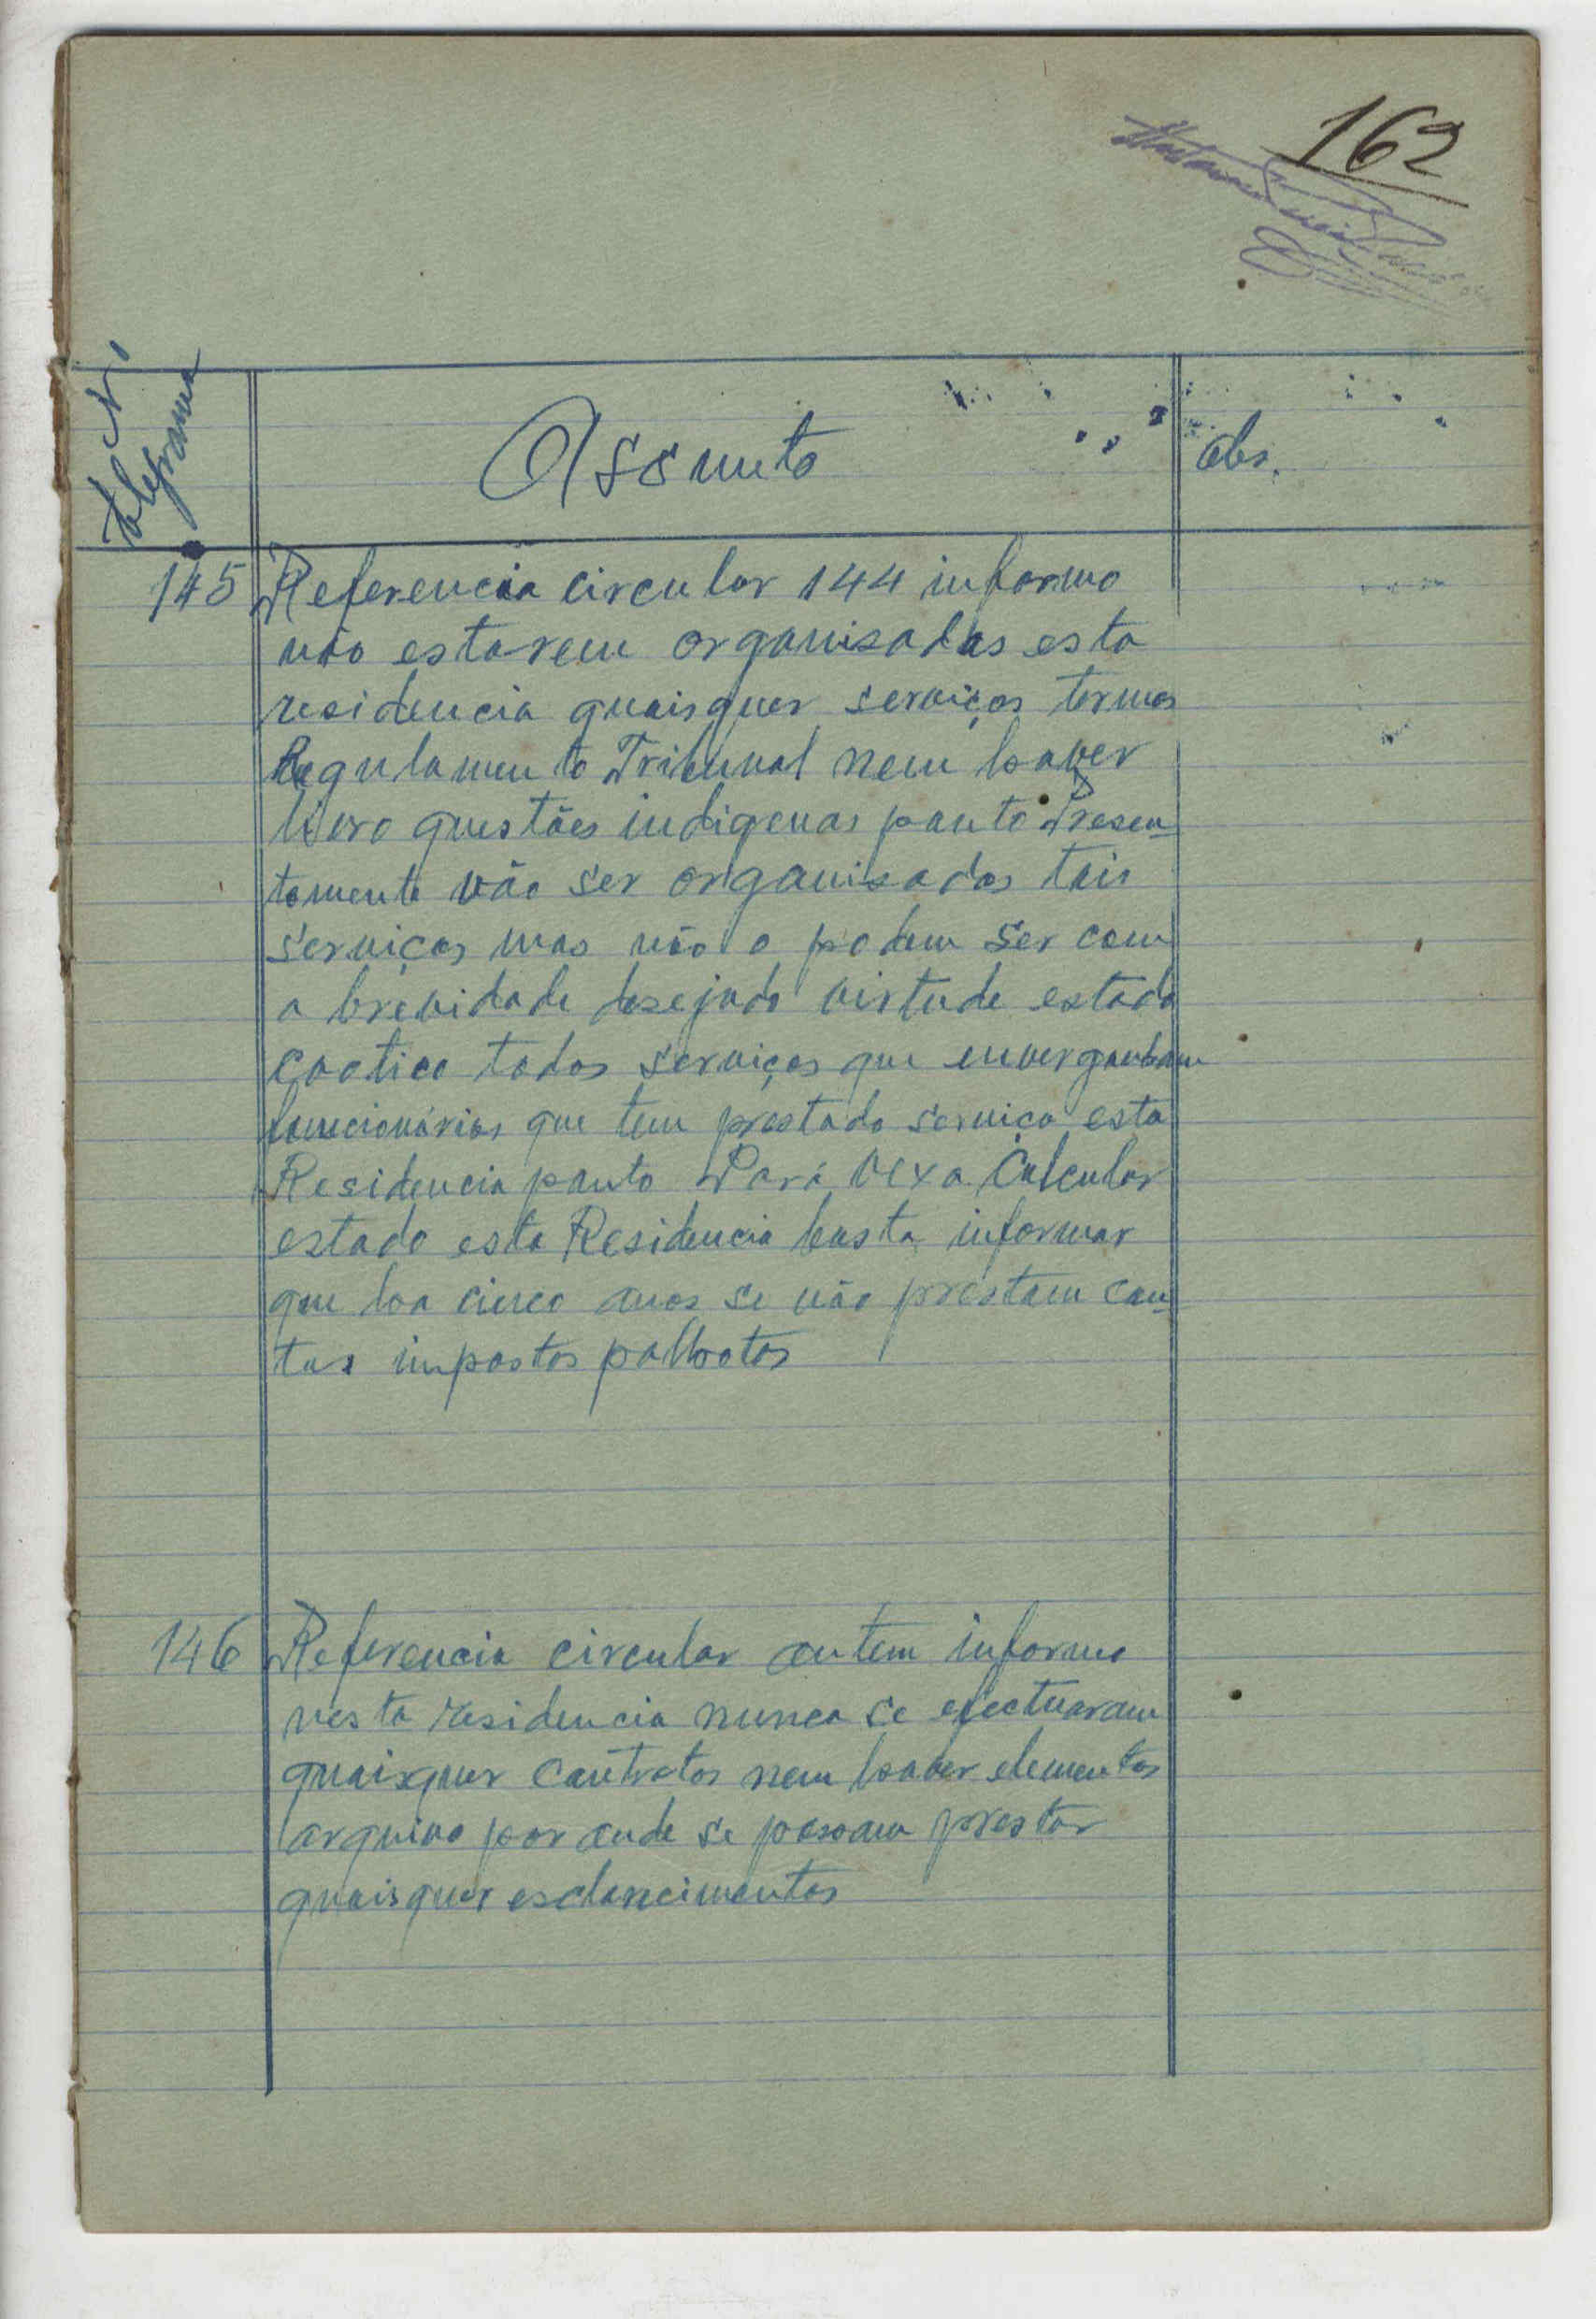 162
N.º
telegrama
Assunto
obs.
145 Referencia circular 144 informo
não estarem organisados esta
residencia quaisquer serviços termos
Regulamento Tribunal nem haver
livro questões indigenas ponto Presen-
temente vão ser organisados tais
serviços mas não o podem ser com
a brevidade desejada virtude estado
caotico todos serviços que envergonham
funcionários que tem prestado serviço esta
Residencia ponto Para Vexa Calcular
estado esta Residencia basta informar
que ha cinco anos se não prestam con-
tas impostos palhotas
146 Referencia circular ontem informo
nesta residencia nunca se efectuaram
quaisquer contratos nem haver elementos
arquivo por onde se possam prestar
quaisquer esclarecimentos